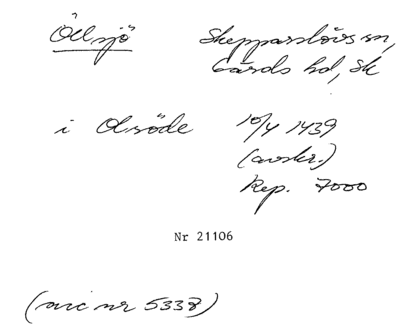 Öllsjö Skepparslövs sn,
Gärds hd, Sk
i Olsöde 10/4 1439
(avskr.)
Rep. 7000
Nr 21106
(mic nr 5338)